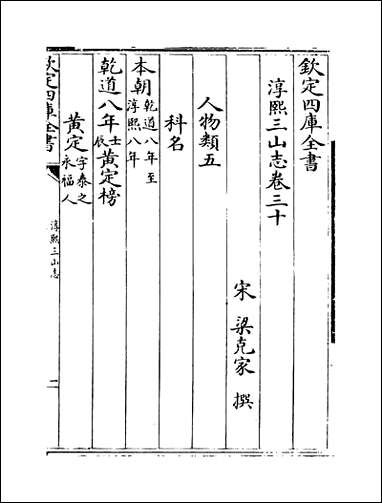 欽定四庫全書
淳熙三山志卷三十
宋 梁克家 撰
人物類五
科名
本朝乾道八年至淳熙八年
乾道八年壬辰黃定榜
黃定字泰之永福人
欽定四庫全書
淳熙三山志
二